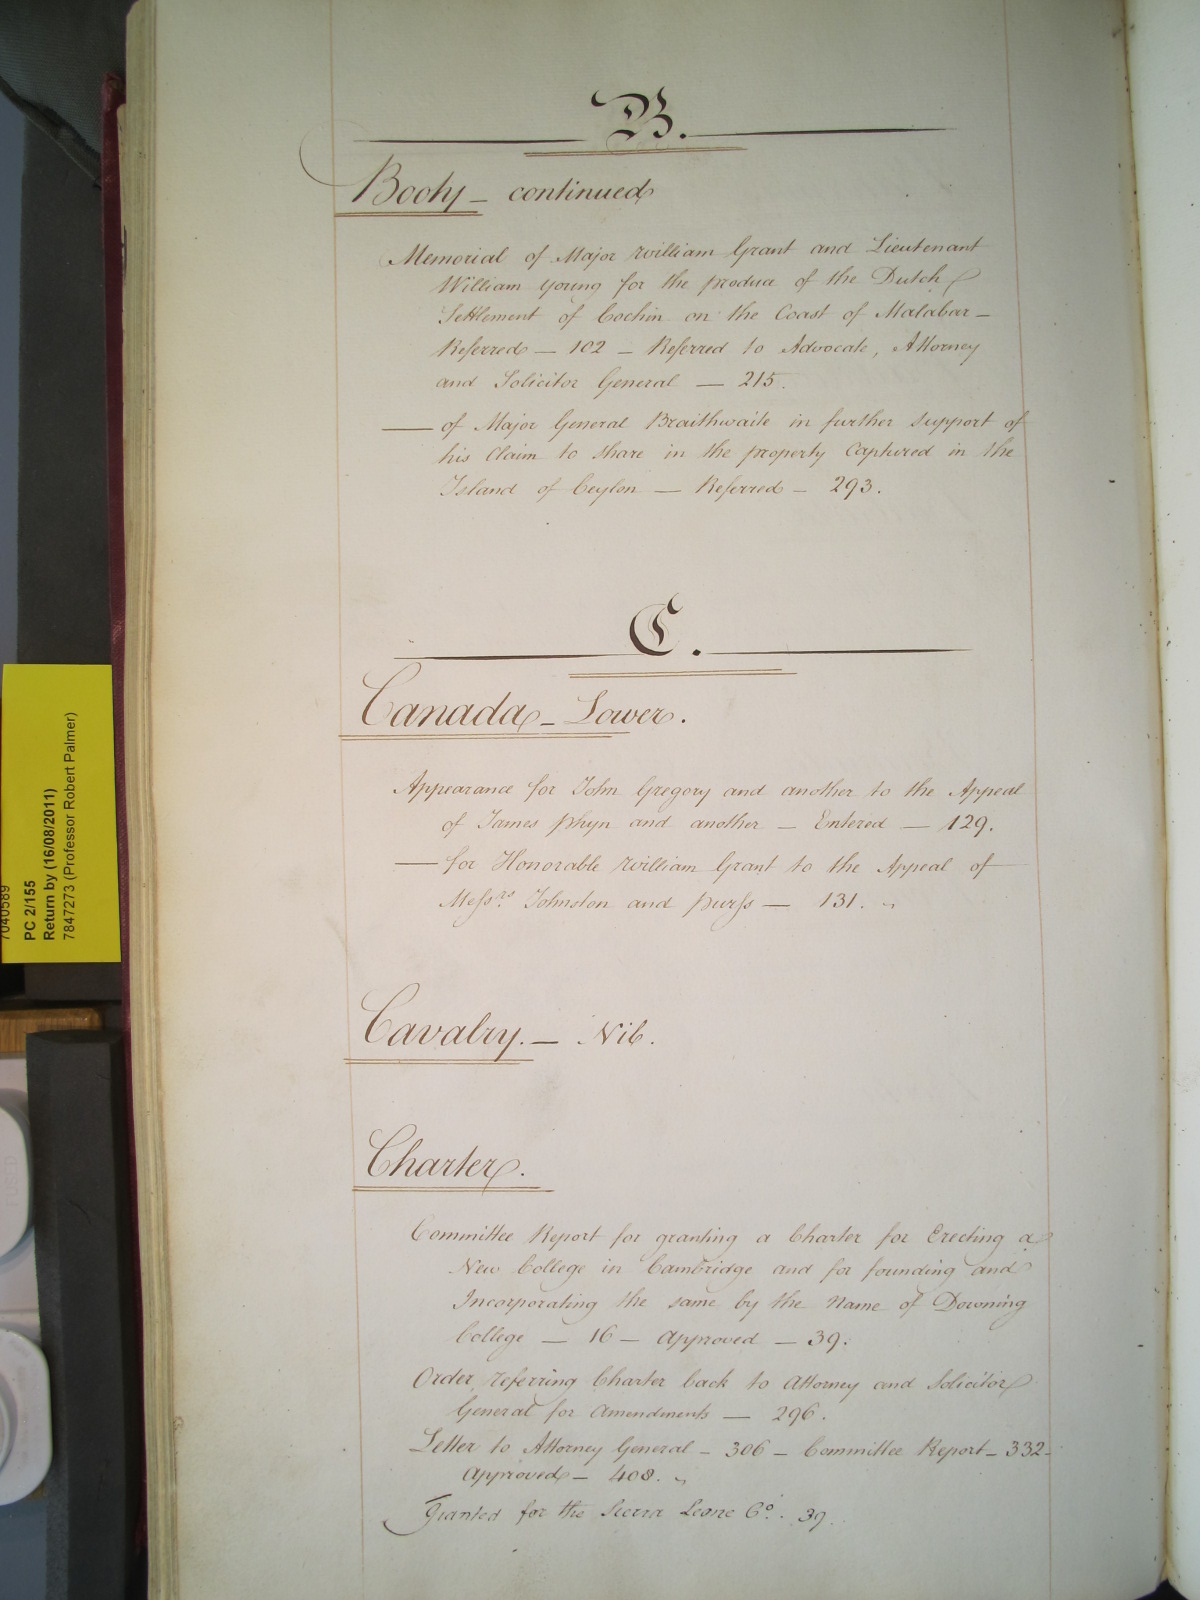 B.
Booty - continued
Memorial of Major William Grant and Lieutenant
William Young for the produce of the Dutch
Settlement of Cochin on the Coast of Malabar -
Referred - 102 - Referred to Advocate, Attorney
and Solicitor General - 215.
— of Major General Braithwaite in further support of
his Claim to share in the property Captured in the
Island of Ceylon - Referred - 293.
C.
Canada - Lower.
Appearance for John Gregory and another to the Appeal
of James Phyn and another - Entered - 129.
— for Honorable William Grant to the Appeal of
Messrs Johnston and Purss - 131.
Cavalry. - Nil.
Charter.
Committee Report for granting a Charter for Erecting a
New College in Cambridge and for founding and
Incorporating the same by the Name of Downing
College - 16 - Approved - 39.
Order referring Charter back to Attorney and Solicitor
General for Amendments - 296.
Letter to Attorney General - 306 - Committee Report - 332 -
Approved - 408.
Granted for the Sierra Leone Co. 39
7040589
PC 2/155
Return by (16/08/2011)
7847273 (Professor Robert Palmer)